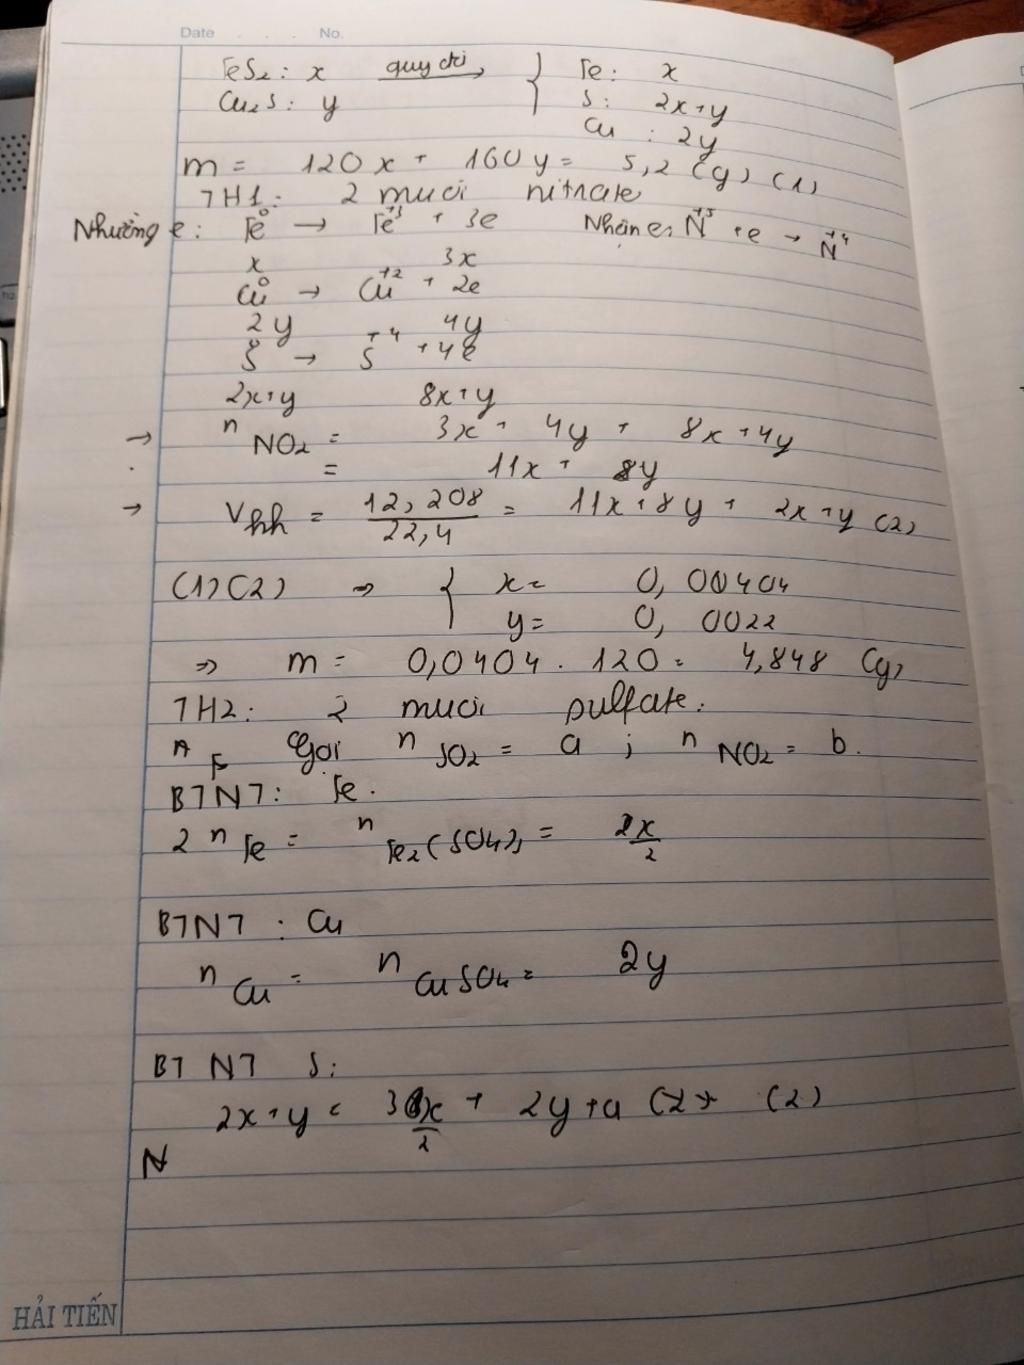 Date . . . No.
FeS₂ : x quy đổi → { Fe : x
Cu₂S : y S : 2x+y
Cu : 2y
m = 120x + 160y = 5,2 (g) (1)
TH1 : 2 muối nitrate
Nhường e : Fe⁰ → Fe⁺³ + 3e Nhận e : N⁺⁵ + e → N⁺⁴
x 3x
Cu⁰ → Cu⁺² + 2e
2y 4y
S⁰ → S⁺⁴ + 4e
2x+y 8x+y
→ n NO₂ = 3x + 4y + 8x+4y
= 11x + 8y
→ Vhh = 12,208/22,4 = 11x+8y + 2x+y (2)
(1)(2) ⇒ { x = 0,00404
y = 0,0022
⇒ m = 0,0404 . 120 = 4,848 (g)
TH2 : 2 muối sulfate.
Gọi n SO₂ = a ; n NO₂ = b.
BTNT : Fe.
2 n Fe = n Fe₂(SO₄)₃ = x/2
BTNT : Cu
n Cu = n CuSO₄ = 2y
BTNT S :
2x+y = 3x/2 + 2y+a (2)
N
HẢI TIẾN